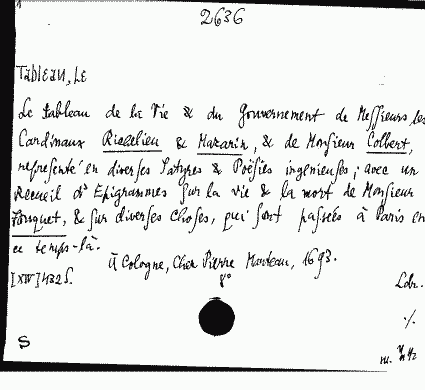 2636
TABLEAU, LE
Le tableau de la Vie & du Gouvernement de Messieurs les
Cardinaux Richelieu & Mazarin, & de Monsieur Colbert,
représenté en diverses Satyres & Poësies ingenieuses; avec un
Recueil d'Epigrammes sur la vie & la mort de Monsieur
Fouquet, & sur diverses choses, qui sont passées à Paris en
ce temps-là.
À Cologne, Chez Pierre Marteau, 1693.
[XIV] 432 S. 8°
Ldr.
./.
S